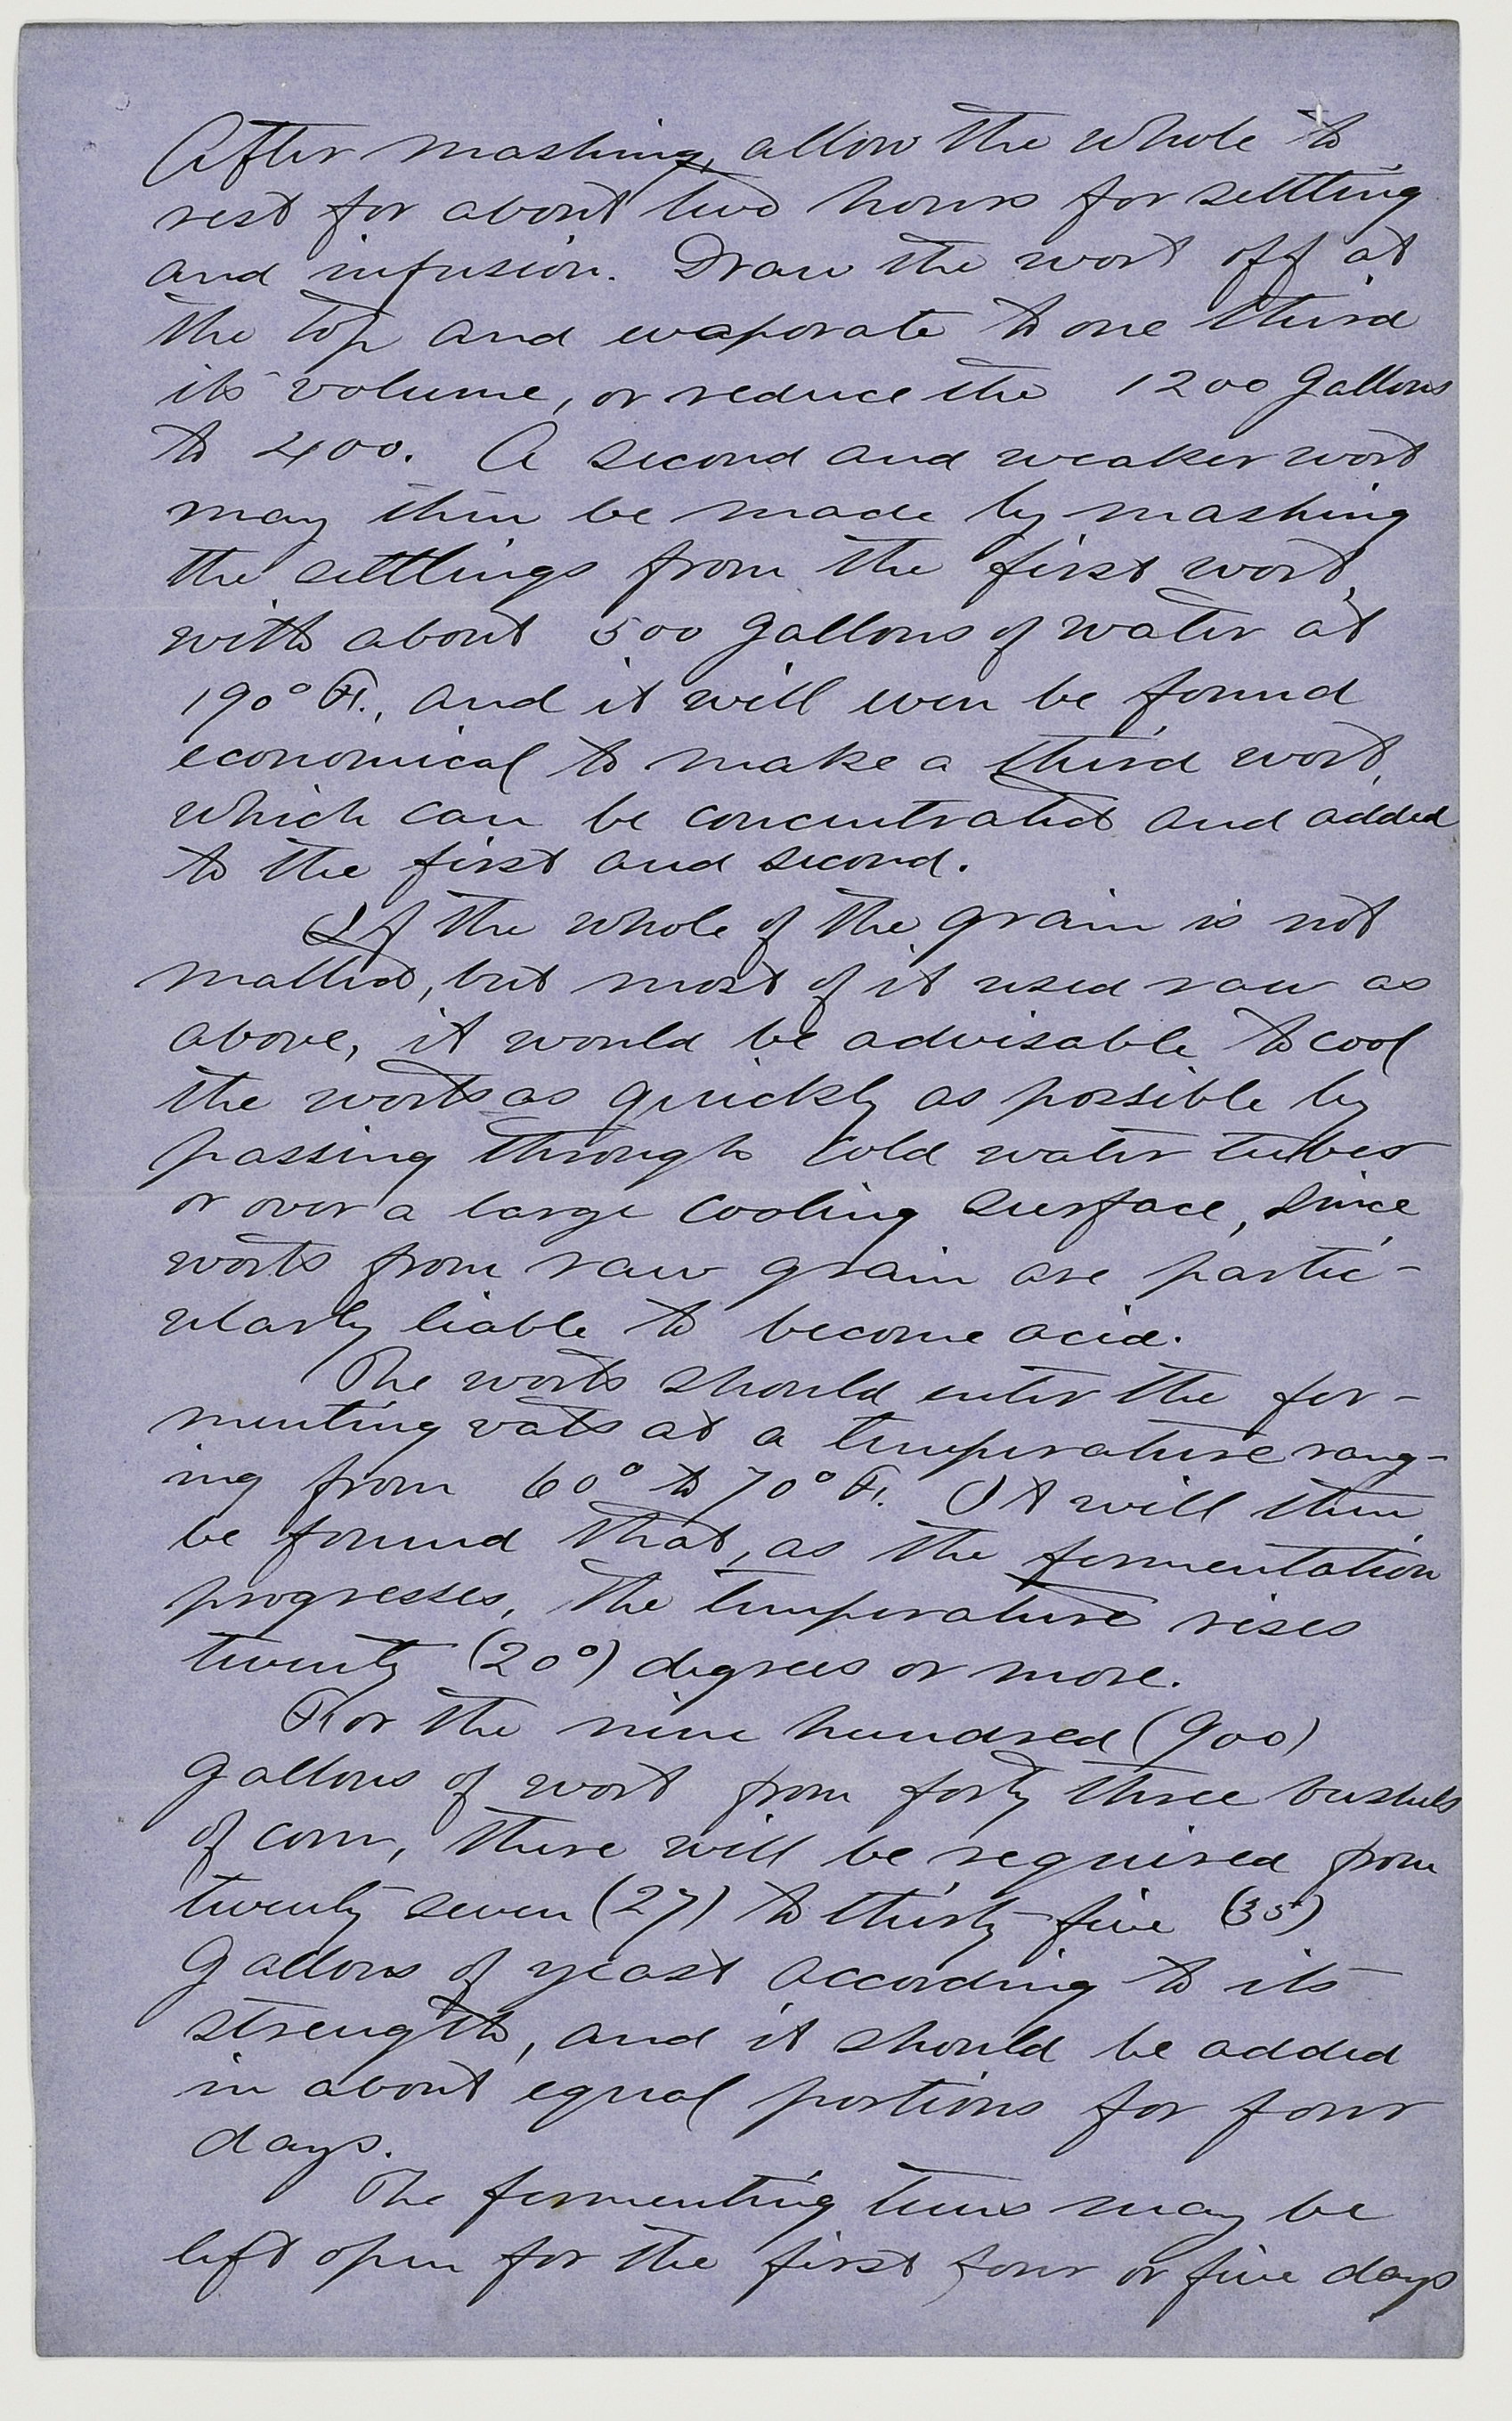 After mashing, allow the whole to
rest for about two hours for settling
and infusion. Draw the wort off at
the top and evaporate to one third
its volume, or reduce the 1200 gallons
to 400. A second and weaker wort
may then be made by mashing
the settlings from the first wort,
with about 500 gallons of water at
190° F., and it will even be found
economical to make a third wort,
which can be concentrated and added
to the first and second.
If the whole of the grain is not
malted, but most of it used raw as
above, it would be advisable to cool
the worts as quickly as possible by
passing through cold water tubes
or over a large cooling surface, since
worts from raw grain are partic-
ularly liable to become acid.
The worts should enter the fer-
menting vats at a temperature rang-
ing from 60° to 70° F. It will then
be found that, as the fermentation
progresses, the temperature rises
twenty (20°) degrees or more.
For the nine hundred (900)
gallons of wort from forty three bushels
of corn, there will be required from
twenty seven (27) to thirty-five (35)
gallons of yeast according to its
strength, and it should be added
in about equal portions for four
days.
The fermenting tuns may be
left open for the first four or five days